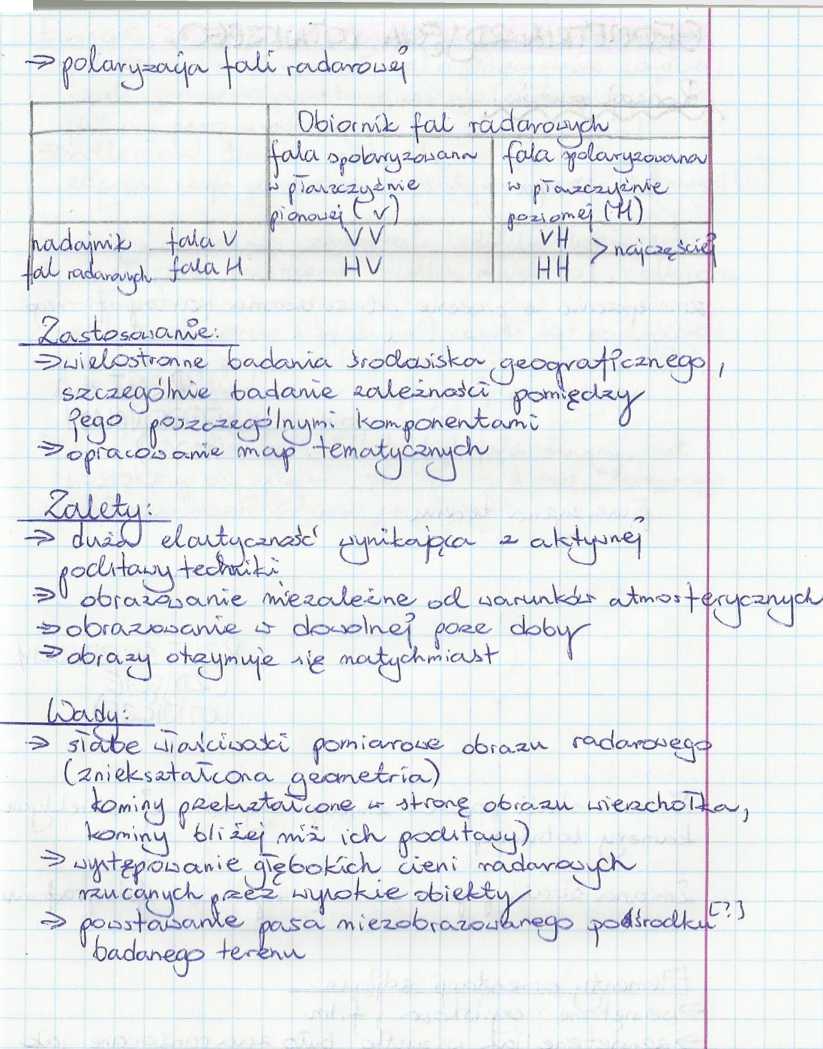 ⇒ polaryzacja fali radarowej
Obiornik fal radarowych
fala spolaryzowana w płaszczyźnie pionowej (V)
fala spolaryzowana w płaszczyźnie poziomej (H)
nadajnik fal radarowych
fala V VV VH
fala H HV HH
> najczęściej
Zastosowanie:
⇒ wielostronne badania środowiska geograficznego,
szczególnie badanie zależności pomiędzy
jego poszczególnymi komponentami
⇒ opracowanie map tematycznych
Zalety:
⇒ duża elastyczność wynikająca z aktywnej
podstawy techniki
⇒ obrazowanie niezależne od warunków atmosferycznych
⇒ obrazowanie w dowolnej porze doby
⇒ obrazy otrzymuje się natychmiast
Wady:
⇒ słabe właściwości pomiarowe obrazu radarowego
(zniekształcona geometria)
kominy przekształcone w stronę obrazu wierzchołka,
kominy bliżej niż ich podstawy)
⇒ występowanie głębokich cieni radarowych
rzucanych przez wysokie obiekty
⇒ powstawanie pasa niezobrazowanego pośrodku [?]
badanego terenu